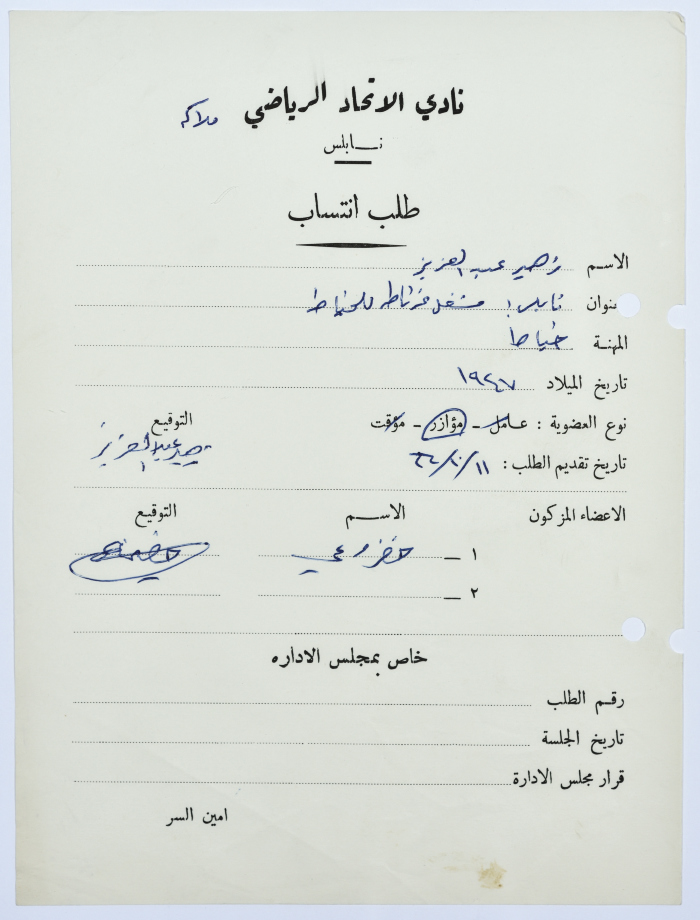 نادي الاتحاد الرياضي
ملاكمة
نـــابلس
طلب انتساب
الاسم زهير عبد العزيز
عنوان نابلس: مشغل غرناطة للخياطة
المهنة خياط
تاريخ الميلاد ١٩٤٧
نوع العضوية : عامل - مؤازر - مؤقت
التوقيع
تاريخ تقديم الطلب : ١١/١٠/٦٤
زهير عبد العزيز
الاعضاء المزكون الاســم التوقيع
١ —
٢ —
خاص بمجلس الاداره
رقم الطلب
تاريخ الجلسة
قرار مجلس الادارة
امين السر